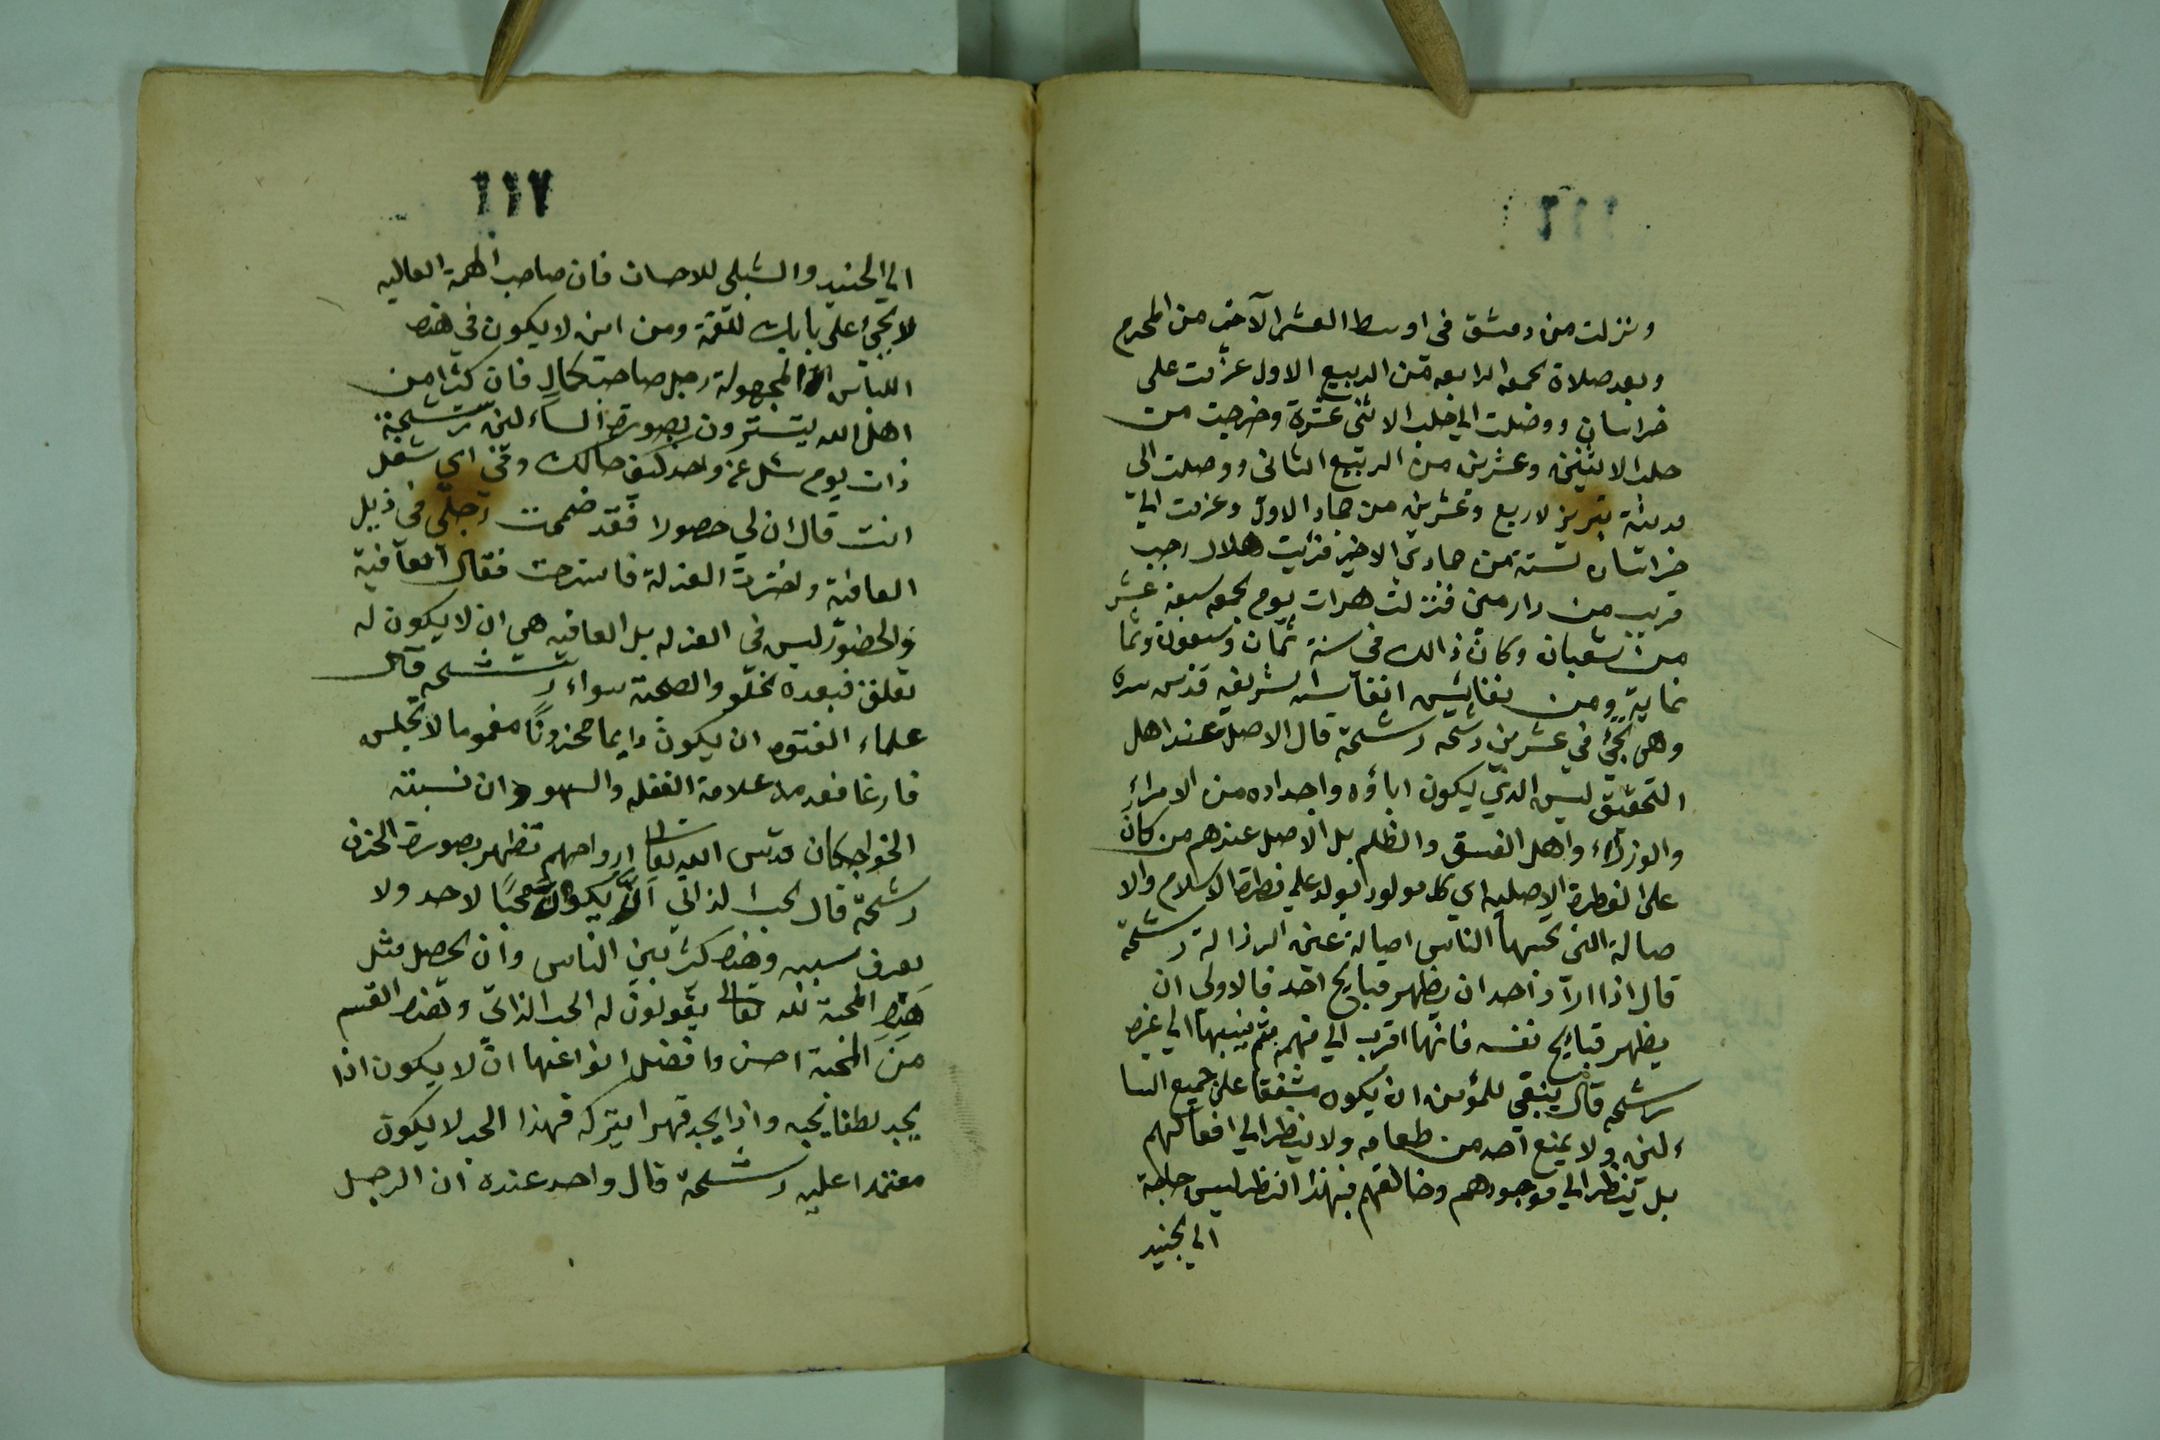 ١١٦
ونزلت من دمشق فى اوسط العشر الآخر من المحرم
وبعد صلاة لجمعه الرابعه من الربيع الاول عزمت على
خراسان ووصلت الى حلب الاثنى عشرة وخرجت من
حلب الاثنين وعشرين من الربيع الثانى ووصلت الى
مدينة تبريز لاربع وعشرين من جماد الاول وعزمت الي
خراسان لستة من جمادى الاخير فرئيت هلال رجب
قريب من دارمين فنزلت هرات يوم لجمعه سبعة عشر
من شعبان وكان ذالك فى سنة ثمان وسبعون وثما
نماية ومن نفايس انفاسه الشريفه قدس سره
وهى تجئ فى عشرين رشحه رشحة قال الاصل عند اهل
التحقيق ليس الذي يكون اباؤه واجداده من الامراء
والوزراء واهل الفسق والظلم بل الاصل عندهم من كان
على الفطرة الاصليه اي كل مولود يولد على فطرة الاسلام والا
صالة التى تحسبها الناس اصالة عين الرذالة رشحة
قال اذا اراد احد ان يظهر قبايح احد فالاولى ان
يظهر قبايح نفسه فانها اقرب الي فهمه ثم ينبهها الي غيره
رشحه قال ينبغي للمؤمن ان يكون مشفقا على جميع السا
ءلين ولا يمنع احد من طعامه ولا ينظر الي افعالهم
بل ينظر الي موجودهم وخالقهم فبهذا النظر ليس حاجة
الي لجنيد
١١٧
الي الجنيد والشبلى للاحسان فان صاحب الهمة العاليه
لا يجئ على بابك للقمة ومن اين لا يكون في هذه
اللباس المجهولة رجل صاحب كمال فان كثيرا من
اهل الله يتسترون بصورة السآءلين رشحة
ذات يوم سئل عن واحد كيف حالك وفى اي شغل
انت قال ان لي حضورا فقد ضممت رجلى فى ذيل
العافية واخترت العزلة فاسترحت فقال العآفية
والحضور ليس فى العزله بل العافيه هى ان لا يكون له
تعلق فبعده لخلو والصحبة سواء رشحه قال
علماء الفتوه ان يكون دايما محزونًا مغموما لا تجلس
فارغا فعدمه علامة الغفله والسهو وان نسبة
الخواجكان قدس الله تعالى ارواحهم تظهر بصورة الحزن
رشحة قال لحب الذاتي ان يكون محبًا لاحد ولا
يعرف سببه وهذه كثير بين الناس وان يحصل مثل
هذه المحبة لله تعالى يقولون له الحب الذاتى وهذه القسم
من المحبة احسن وافضل انواعها ان لا يكون اذا
يجد لطفا يحبه واذا يجد قهرا يتركه فهذا الحب لا يكون
معتمدا عليه رشحة قال واحد عنده ان الرجل